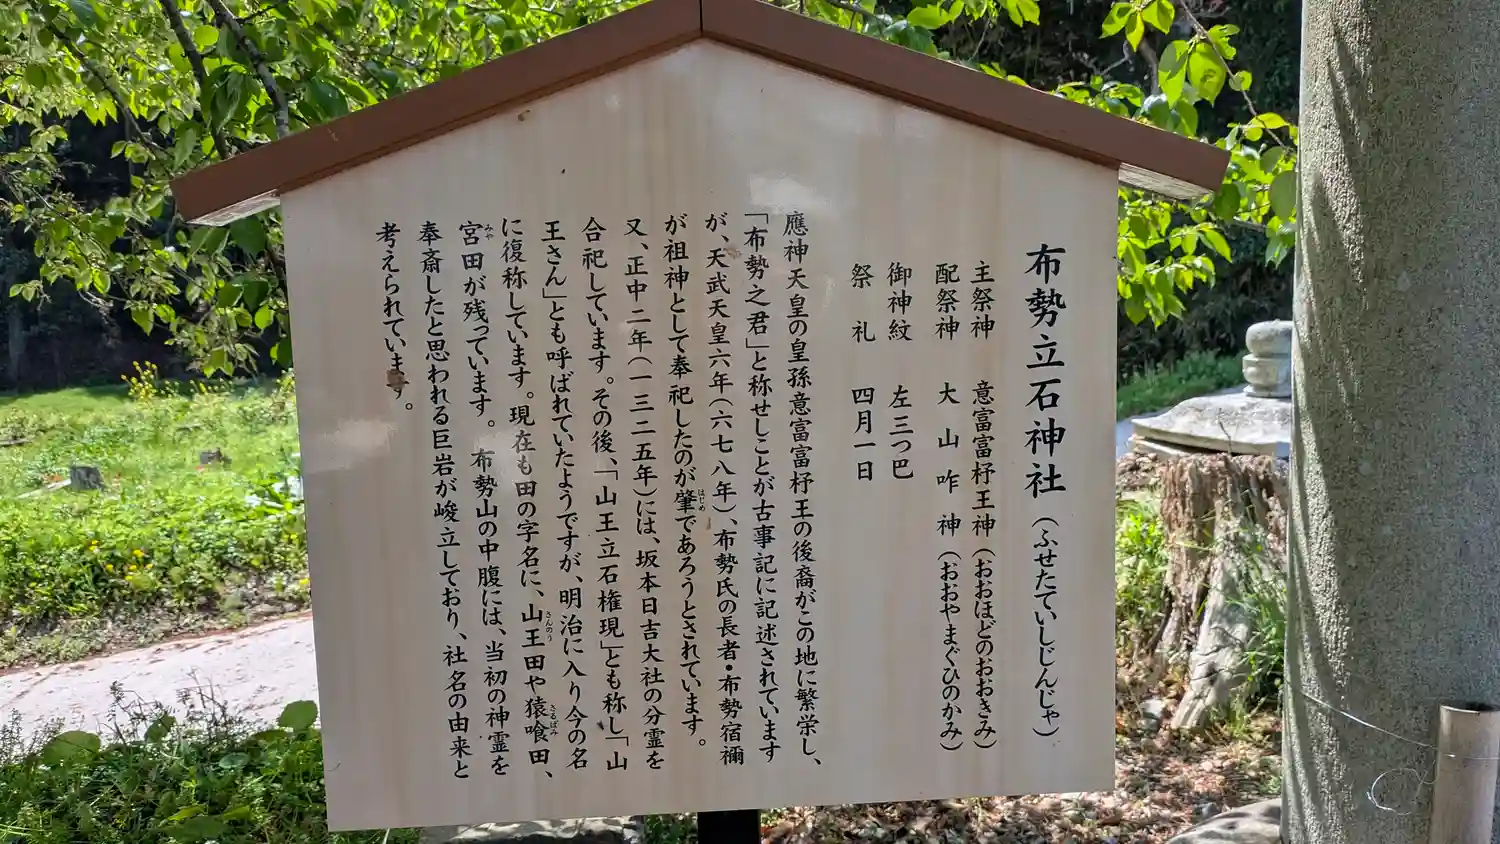 布勢立石神社(ふせたていしじんじゃ)
主祭神 意富富杼王神(おおほどのおおきみ)
配祭神 大山咋神(おおやまぐひのかみ)
御神紋 左三つ巴
祭礼 四月一日
應神天皇の皇孫意富富杼王の後裔がこの地に繁栄し、
「布勢之君」と称せしことが古事記に記述されています
が、天武天皇六年(六七八年)、布勢氏の長者・布勢宿禰
が祖神として奉祀したのが肇(はじめ)であろうとされています。
又、正中二年(一三二五年)には、坂本日吉大社の分霊を
合祀しています。その後、「山王立石権現」とも称し「山
王さん」とも呼ばれていたようですが、明治に入り今の名
に復称しています。現在も田の字名に、山王田(さんのう)や猿喰田(さるばみ)、
宮田(みや)が残っています。布勢山の中腹には、当初の神霊を
奉斎したと思われる巨岩が峻立しており、社名の由来と
考えられています。